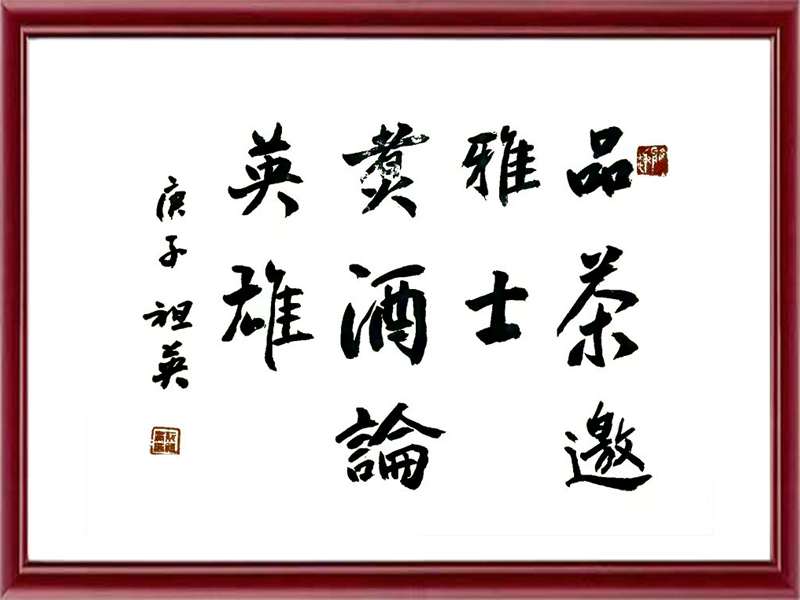 品茶邀
雅士
煑酒論
英雄
庚子 祖英